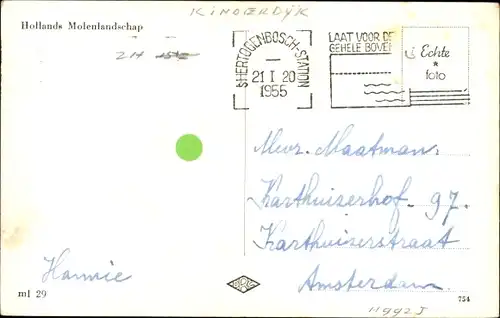 KINDERDYK
Hollands Molenlandschap
ZH
'SHERTOGENBOSCH-STATION
21 I 20
1955
LAAT VOOR DE
GEHELE BOVEN
Echte
*
foto
Mevr. Maatman.
Karthuizerhof. 97.
Karthuizerstraat
Amsterdam.
Hannie
ml 29
754